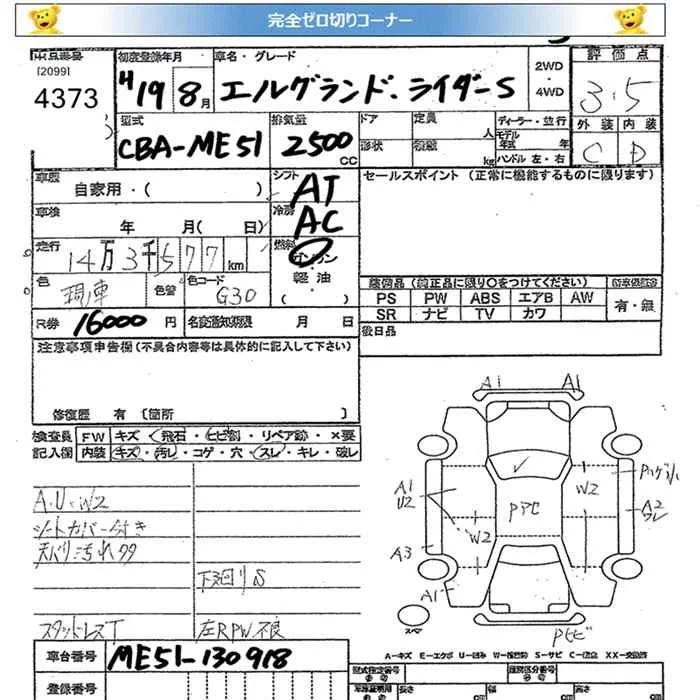 完全ゼロ切りコーナー
出品番号 初度登録年月 車名・グレード 2WD・4WD 評価点
[2099]
4373
H19 8月 エルグランド・ライダーS 3.5
型式 排気量 ドア 定員 人 ディーラー・並行 外装 内装
CBA-ME51 2500 CC 形状 積載 kg モデル年式 年 ハンドル 左・右 C D
車歴 自家用・( ) シフト AT セールスポイント (正常に機能するものに限ります)
車検 年 月( 日) 冷房 AC
走行 14万3千577km 燃料 ガソリン
色 現車 色替 色コード G30 軽油 ( )
装備品(純正品に限り○をつけてください)
PS PW ABS エアB AW 有・無
SR ナビ TV カワ
R券 16000円 名変通知期限 月 日
後日品
注意事項申告欄(不具合内容等は具体的に記入して下さい)
修復歴 有 [箇所 ]
検査員 FW キズ・飛石・ヒビ割・リペア跡・×要
記入欄 内装 キズ・汚レ・コゲ・穴・スレ・キレ・破レ
A1 A1
A・U・W2
シートカバー付き
天バリ汚れ
下廻りS
スタッドレスT 左RPW不良
A1 U2 W2 A2 ワレ
A3 W2
A1
スペア
車台番号 ME51-130918
A-キズ E-エクボ U-凹み W-補修跡 S-サビ C-腐食 XX-交換済
登録番号 型式指定番号 類別区分番号
長さ cm 幅 cm 高さ cm